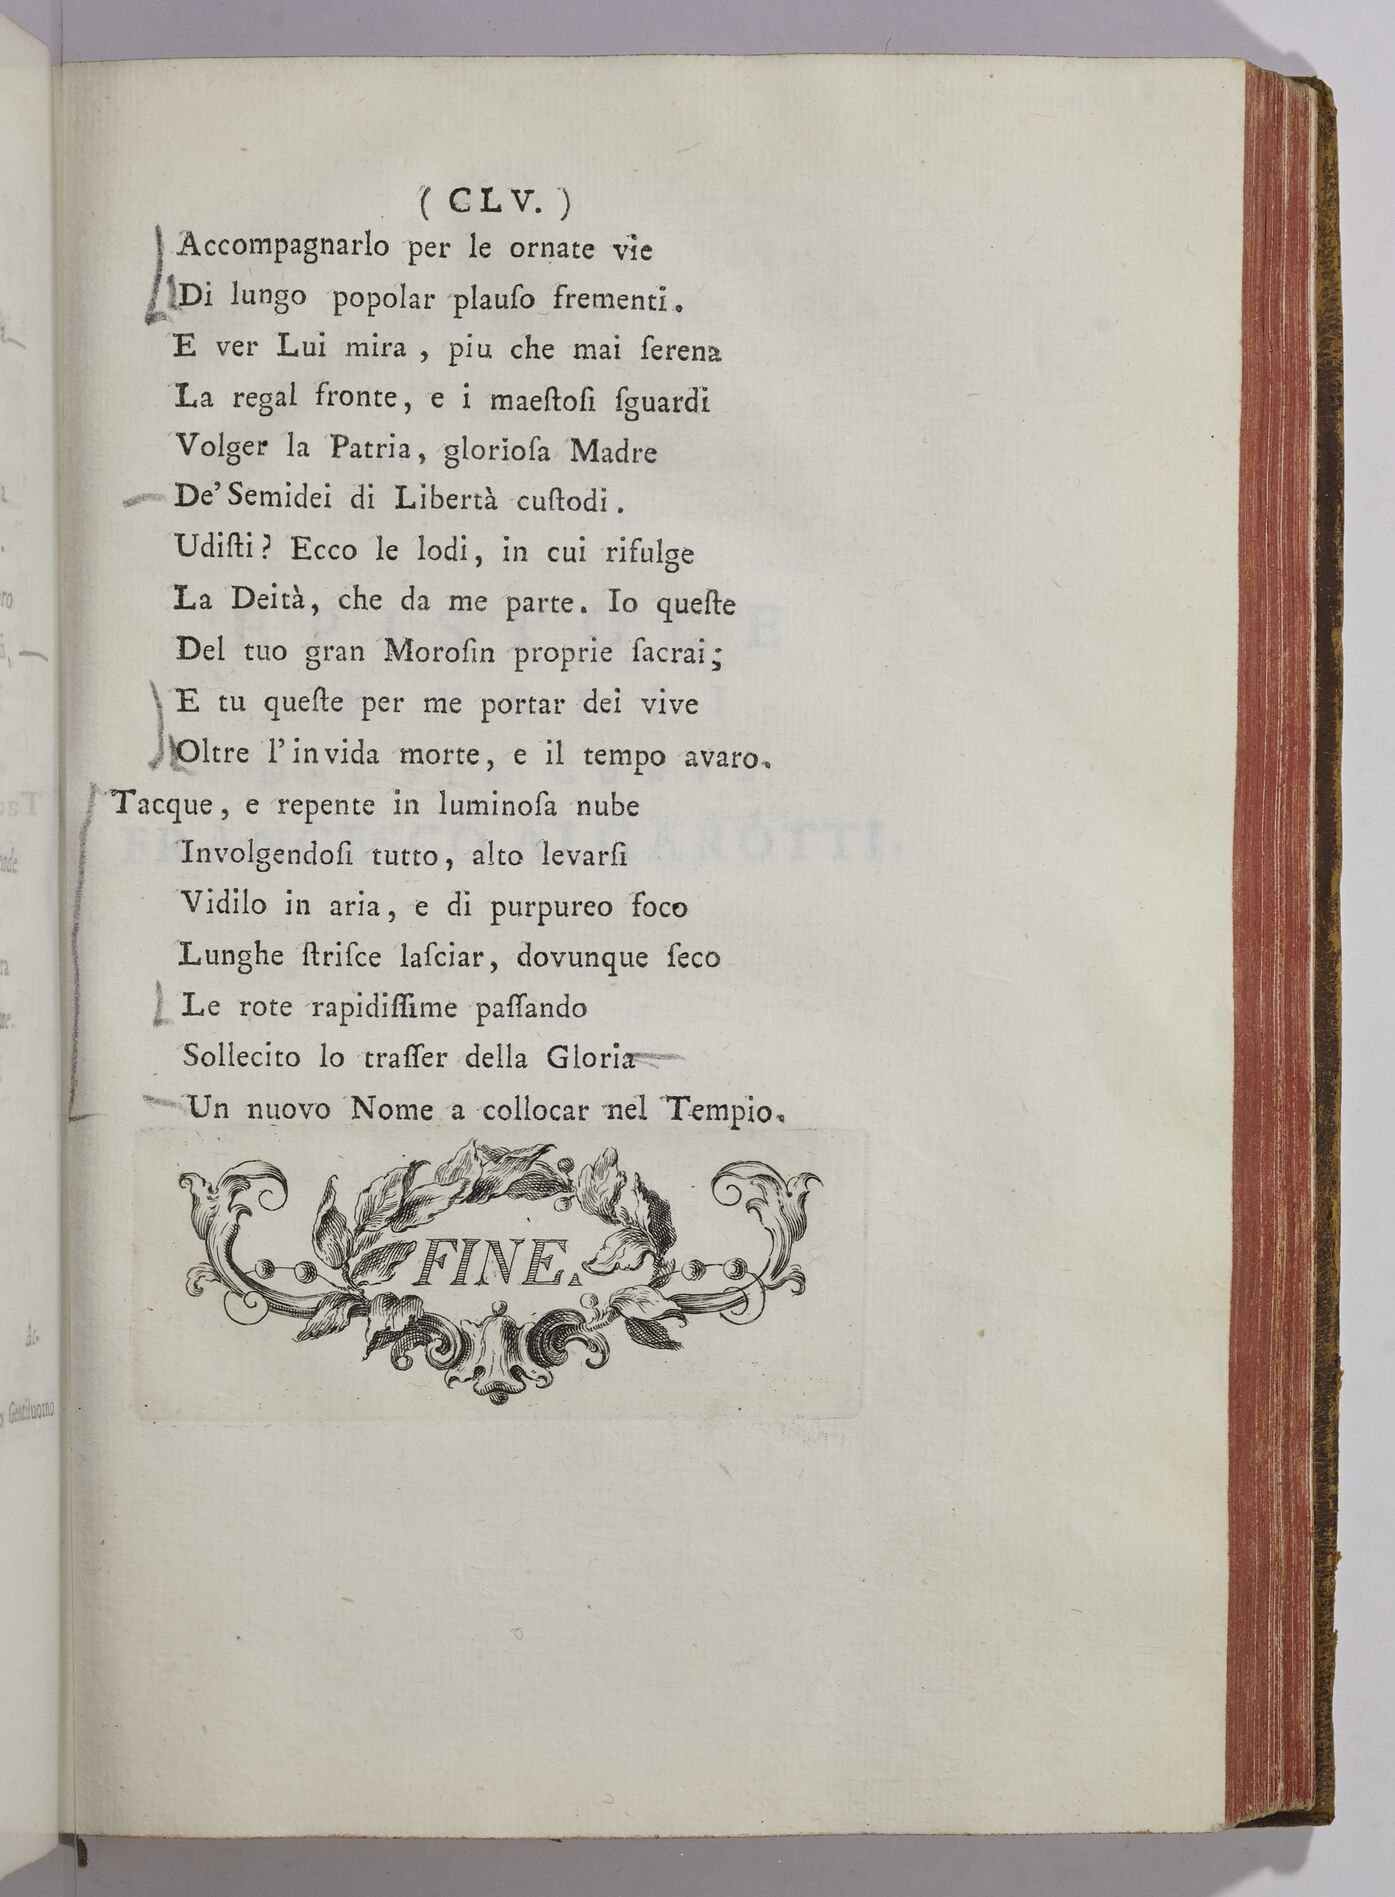 ( CLV. )
Accompagnarlo per le ornate vie
Di lungo popolar plauſo frementi.
E ver Lui mira , piu che mai ſerena
La regal fronte, e i maeſtoſi ſguardi
Volger la Patria, glorioſa Madre
De' Semidei di Libertà cuſtodi.
Udiſti? Ecco le lodi, in cui riſulge
La Deità, che da me parte. Io queſte
Del tuo gran Moroſin proprie ſacrai;
E tu queſte per me portar dei vive
Oltre l'invida morte, e il tempo avaro.
Tacque, e repente in luminoſa nube
Involgendoſi tutto, alto levarſi
Vidilo in aria, e di purpureo foco
Lunghe ſtriſce laſciar, dovunque ſeco
Le rote rapidiſſime paſſando
Sollecito lo traſſer della Gloria
Un nuovo Nome a collocar nel Tempio.
FINE.
Gentiluomo